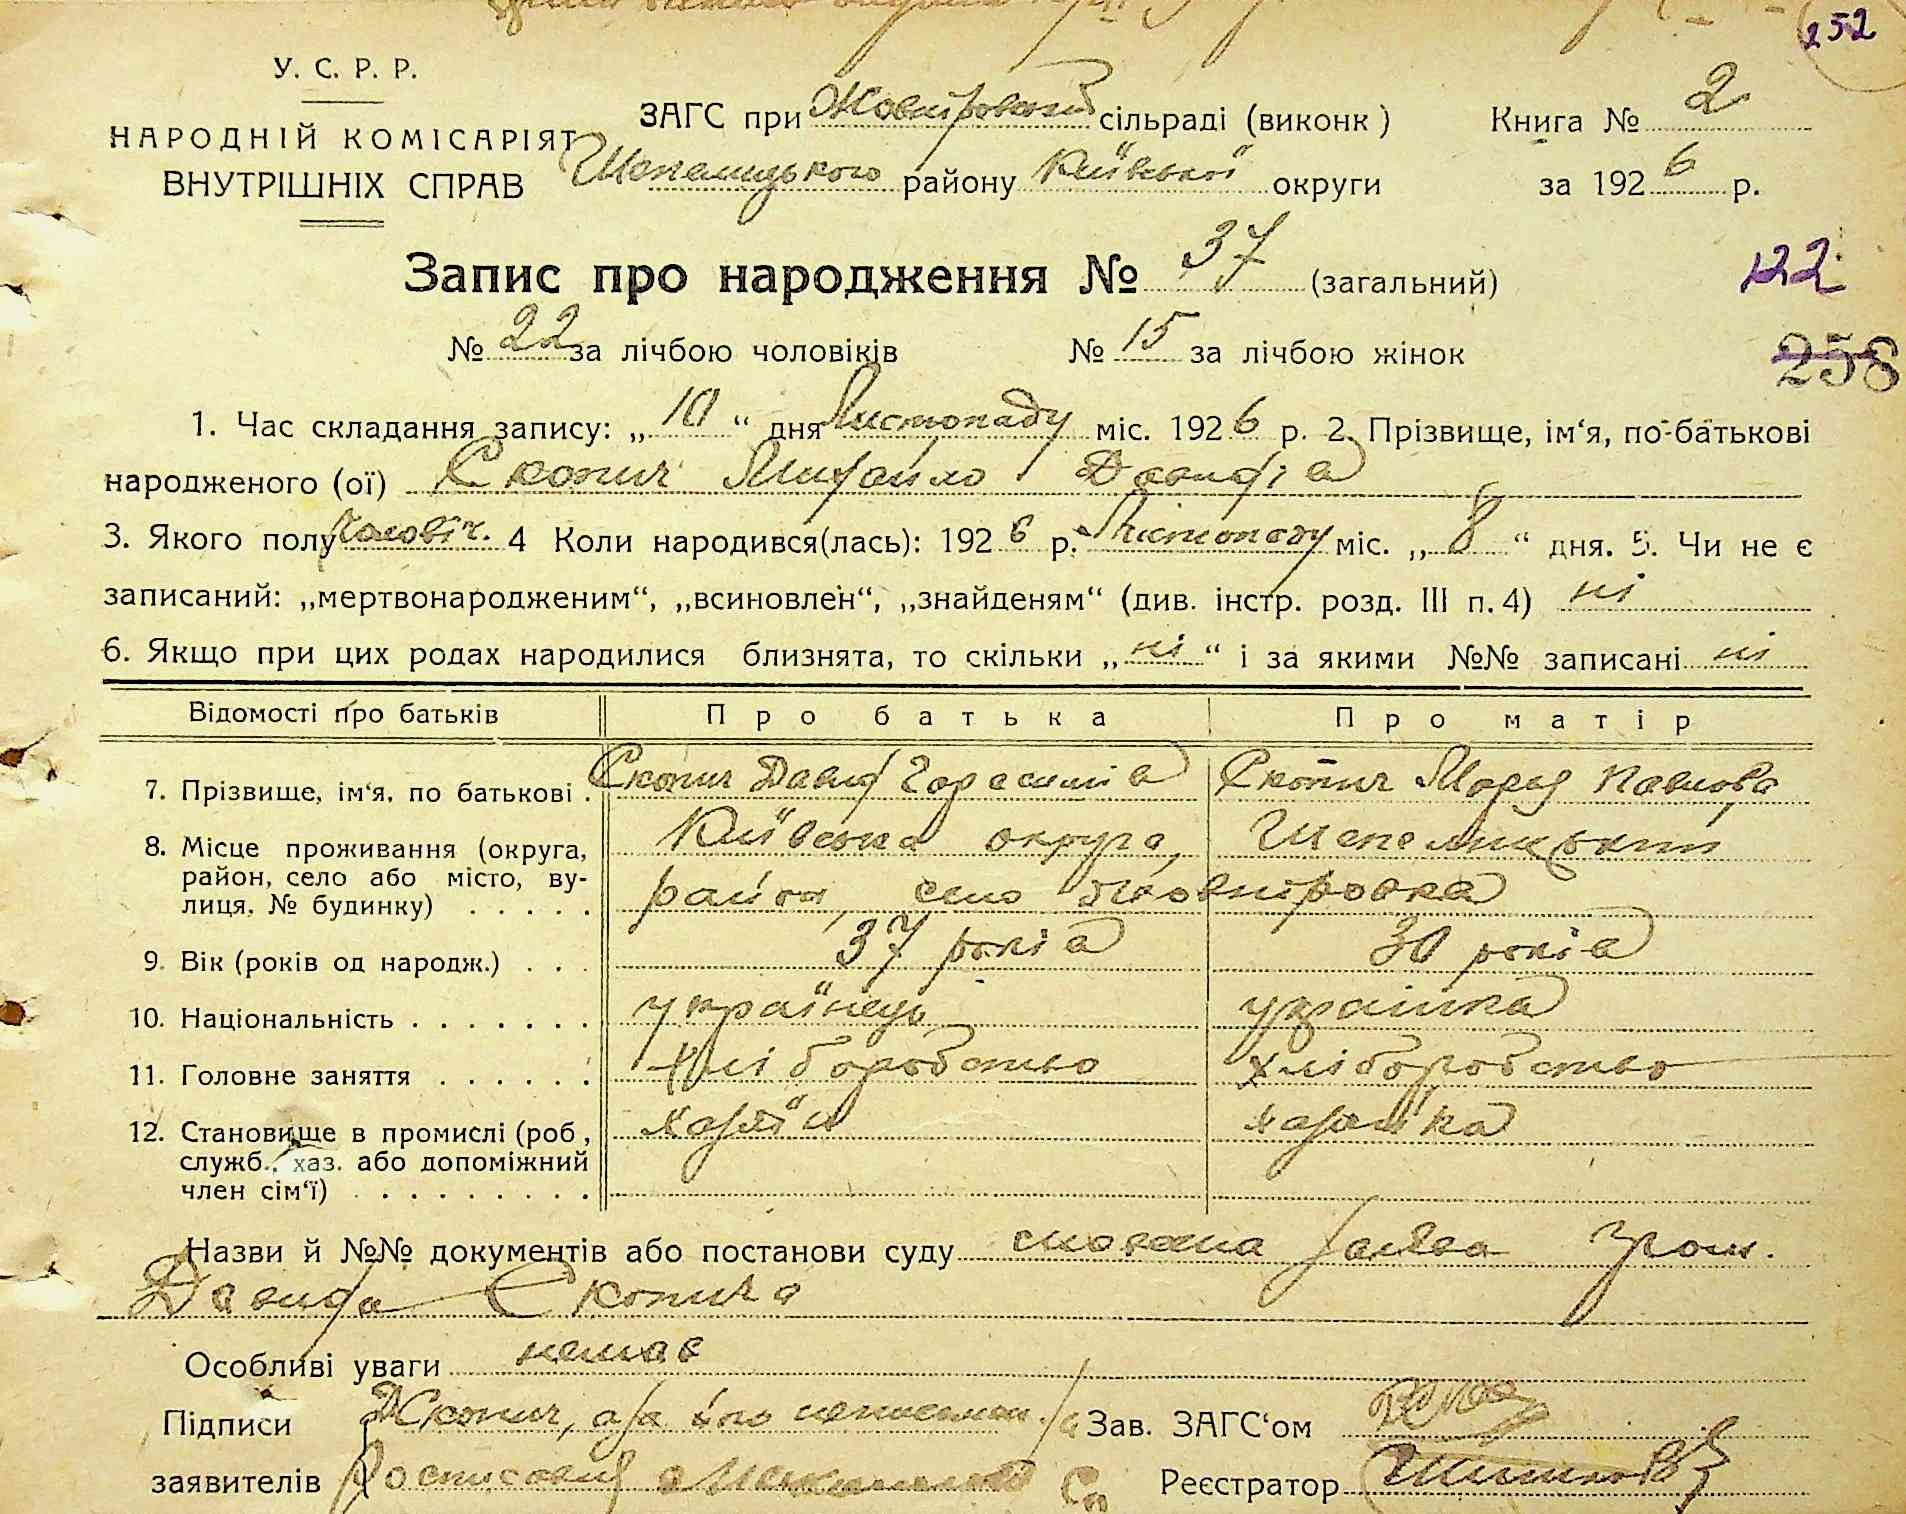 252
У. С. Р. Р.
НАРОДНІЙ КОМІСАРІЯТ
ВНУТРІШНІХ СПРАВ
ЗАГС при сільраді (виконк )
Шепелицького району Київської округи
Книга № 2
за 1926 р.
Запис про народження № 37 (загальний)
122
№ 22 за лічбою чоловіків № 15 за лічбою жінок
258
1. Час складання запису: „10“ дня Листопаду міс. 1926 р. 2. Прізвище, ім‘я, по-батькові
народженого (ої) Скопич Михайло Давидів
3. Якого полу чоловіч. 4 Коли народився(лась): 1926 р. Листопаду міс. „8“ дня. 5. Чи не є
записаний: „мертвонародженим“, „всиновлен“, „знайденям“ (див. інстр. розд. III п. 4) ні
6. Якщо при цих родах народилися близнята, то скільки „ні“ і за якими №№ записані ні
Відомості про батьків Про батька Про матір
7. Прізвище, ім‘я, по батькові . Скопич Давид Гарасимів Скопич Марія Павлова
8. Місце проживання (округа, район, село або місто, ву-
лиця, № будинку) . . . . .
Київська округа, Шепелицький
район село Жовнировка
9. Вік (років од народж.) . . . 37 років 30 років
10. Національність . . . . . . . українець українка
11. Головне заняття . . . . . . хліборобство хліборобство
12. Становище в промислі (роб, служб., хаз. або допоміжний
член сім‘ї) . . . . . . . . .
Назви й №№ документів або постанови суду словесна заява гром.
Давида Скопича
Особливі уваги немає
Підписи Д Скопич, а за його неписьмен.
заявителів
Зав. ЗАГС‘ом
Реєстратор